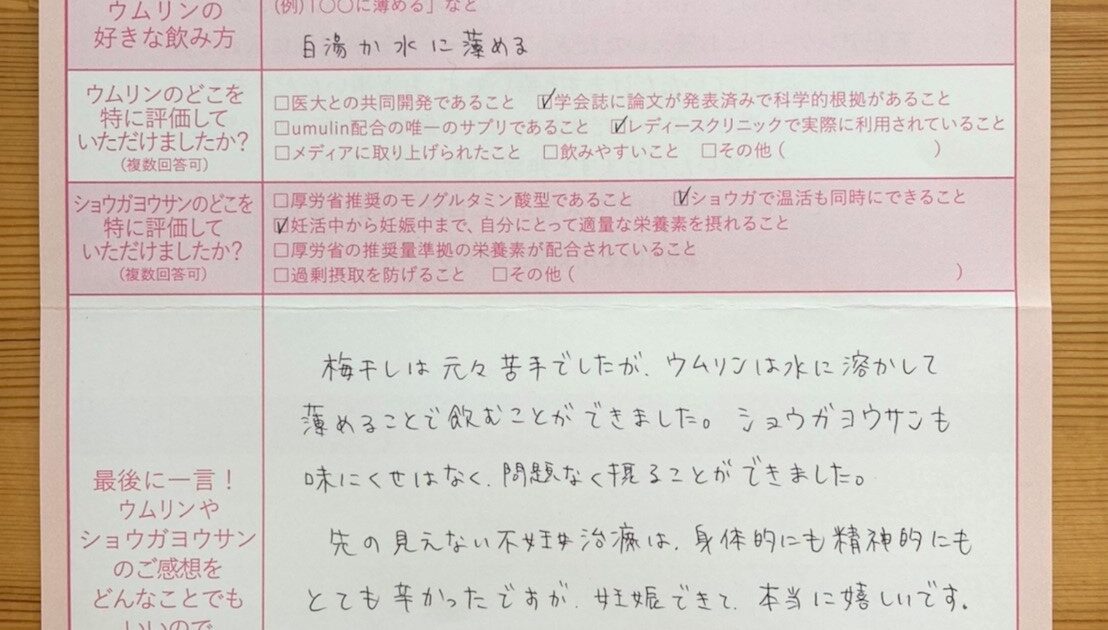 ウムリンの
好きな飲み方
(例)「〇〇に薄める」など
白湯か水に薄める
ウムリンのどこを
特に評価して
いただけましたか?
(複数回答可)
□医大との共同開発であること ☑学会誌に論文が発表済みで科学的根拠があること
□umulin配合の唯一のサプリであること ☑レディースクリニックで実際に利用されていること
□メディアに取り上げられたこと □飲みやすいこと □その他( )
ショウガヨウサンのどこを
特に評価して
いただけましたか?
(複数回答可)
□厚労省推奨のモノグルタミン酸型であること ☑ショウガで温活も同時にできること
☑妊活中から妊娠中まで、自分にとって適量な栄養素を摂れること
□厚労省の推奨量準拠の栄養素が配合されていること
□過剰摂取を防げること □その他( )
最後に一言!
ウムリンや
ショウガヨウサン
のご感想を
どんなことでも
いいので
梅干しは元々苦手でしたが、ウムリンは水に溶かして
薄めることで飲むことができました。ショウガヨウサンも
味にくせはなく、問題なく摂ることができました。
先の見えない不妊治療は、身体的にも精神的にも
とても辛かったですが、妊娠できて、本当に嬉しいです。